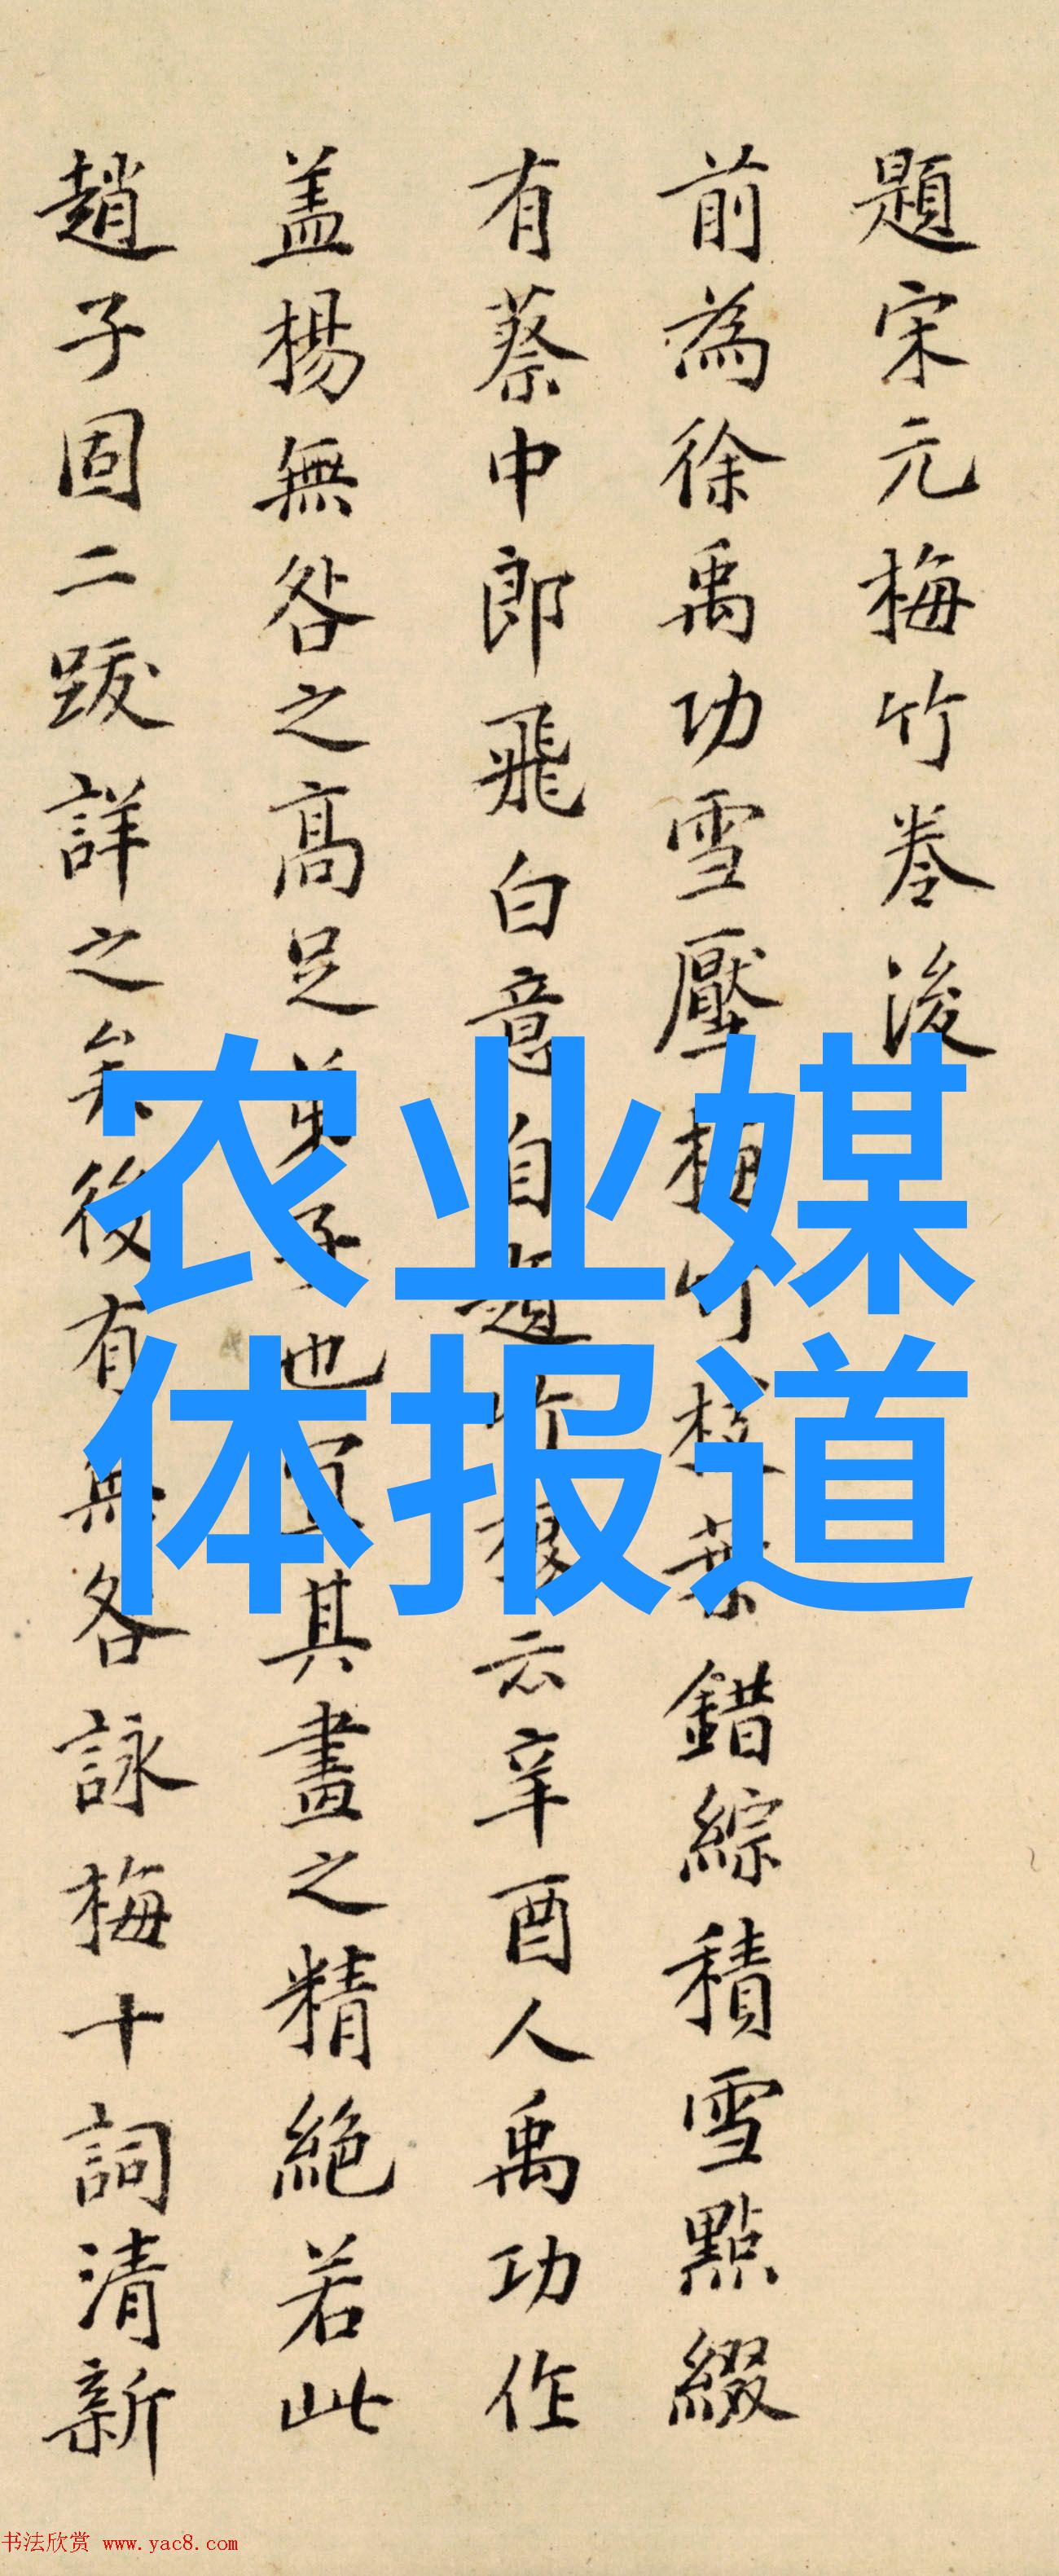 題宋元梅竹卷後
前為徐禹功雪壓梅竹枝葉錯綜積雪點綴
有蔡中郎飛白意自題竹後云辛酉人禹功作
盖楊無咎之高足弟子也宜其畫之精絕若此
趙子固二跋詳之矣後有無咎詠梅十詞清新
农业媒
体报道
书法欣赏 www.yac8.com